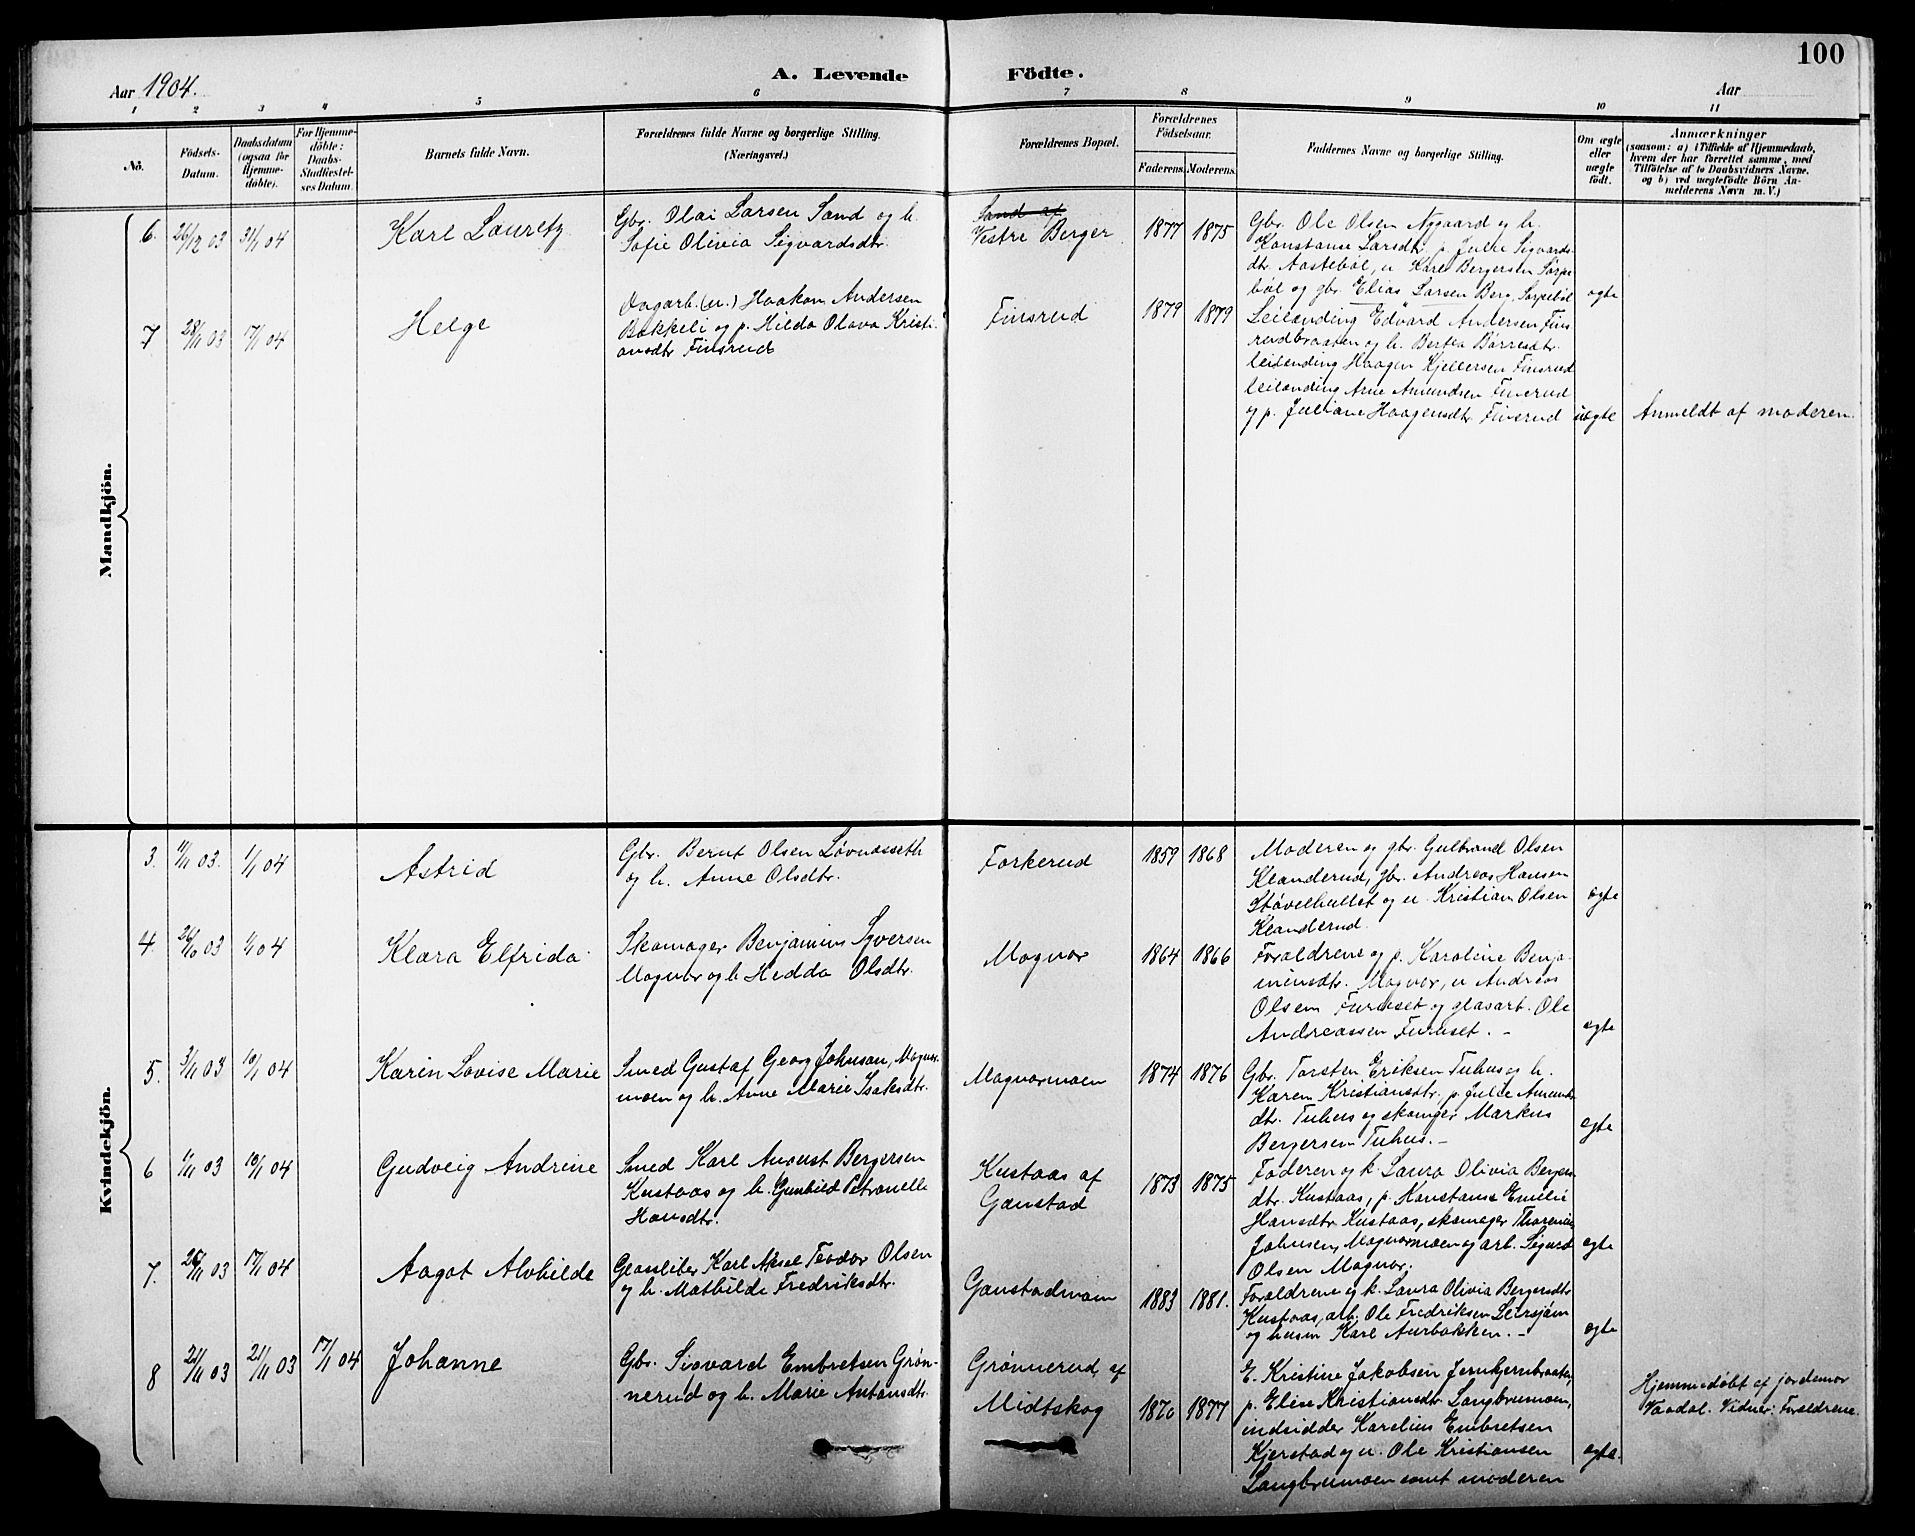 100
Aar 1904.
A. Levende Födte.
Aar
1 2 3 4 5 6 7 8 9 10 11
No.
Födsets-
Datum.
Daabsdatum
(ogsaa for
Hjemme-
döbte).
For Hjemme-
döbte:
Daabs-
Stadfæstel-
ses Datum.
Barnets fulde Navn.
Forældrenes fulde Navne og borgerlige Stilling.
(Næringsvei.)
Forældrenes Bopæl.
Forældrenes
Födselsaar.
Faderens. Moderens.
Faddernes Navne og borgerlige Stilling.
Om ægte
eller
uægte
födt.
Anmærkninger
(saasom: a) i Tilfælde af Hjemmedaab,
hvem der har forrettet samme, med
Tilföielse af to Daabsvidners Navne,
og b) ved uægtefödte Börn An-
melderens Navn m. V.)
Mandkjön.
6. 26/12 03 31/1 04
Karl Lauretz
Gbr. Olai Larsen Sand og h.
Sofie Olivia Sigvardsdtr.
Sand af
Vestre Berger
1877 1875
Gbr. Ole Olsen Nygaard og h.
Konstanse Larsdtr, p. Julie Sigvards-
dtr. Aastebøl, u. Karl Bergersen Sørpe
bøl og gbr. Elias Larsen Berg, Sørpebøl
ægte
7 28/11 03 17/1 04
Helge
Dagarb. (u.) Haakon Andersen
Bakkeli og p. Hilda Olava Kristi-
ansdtr Finsrud
Finsrud
1879 1879
Leilænding Edvard Andersen Fins
rudbraaten og h. Bertea Børresdtr.
leilending Haagen Kjellersen Finsrud
leilænding Arne Amundsen Finsrud
og p. Juliane Haagensdtr. Finsrud
uægte
Anmeldt af moderen.
Kvindekjön.
3. 11/11 03. 1/1 04
Astrid
Gbr. Bernt Olsen Løvnæsseth
og h. Anne Olsdtr.
Forkerud
1859 1868
Moderen og gbr. Gulbrand Olsen
Klanderud, gbr. Andreas Hansen
Støvelhullet og u. Kristian Olsen
Klanderud.
ægte
4. 26/10 03 1/1 04
Klara Elfrida
Skomager Benjamin Syversen
Magnor og h. Hedda Olsdtr.
Magnor
1864 1866
Forældrene og p. Karoline Benja-
minsdtr. Magnor, u. Andreas
Olsen Furuset og glasarb. Ole
Andreassen Furuset. -
ægte
5. 3/11 03 10/1 04
Karin Lovise Marie
Smed Gustaf Georg Johnsan, Magnor
moen og h. Anne Marie Isaksdtr.
Magnormoen
1874 1876
Gbr. Torsten Eriksen Tuhus og h.
Karen Kristiansdtr. p. Julie Amunds
dtr. Tuhus og skomager Markus
Bergersen Tuhus. -
ægte
6 1/11 03 10/1 04
Gudveig Andrine
Smed Karl August Bergersen
Kustaas og h. Gunhild Petronelle
Hansdtr.
Kustaas af
Gaustad
1873 1875
Faderen og k. Laura Olivia Bergers
dtr. Kustaas, p. Konstanse Emilie
Hansdtr Kustaas, skomager
Johnsen, Magnormoen og arb. Sigurd
Olsen Magnor.
ægte
7. 26/11 03 17/1 04
Aagot Alvhilde
Glassliber Karl Aksel Teodor Olsen
og h. Mathilde Fredriksdtr.
Gaustadmoen
1883 1881.
Forældrene og k. Laura Olivia Bergersdtr
Kustaas, arb. Ole Fredriksen Leirsjøen
og husm Karl Aurbakken. -
ægte
8 21/11 03 21/11 03 17/1 04
Johanne
Gbr. Sigvard Embretsen Grøn-
nerud og h. Marie Antonsdtr.
Grønnerud af
Midtskog
1870 1877
E. Kristine Jakobsen Jernkjernbraaten,
p. Elise Kristiansdtr. Langbrumoen,
indsidder Karelius Embretsen
Kjerstad og u. Ole Kristiansen
Langbrumoen samt moderen
ægte.
Hjemmedøbt af jordemor
Vaadal. Vidner: Forældrene.